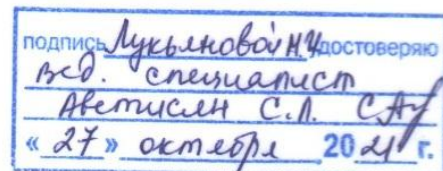 подпись Лукьяновой Н.Ч. удостоверяю
вед. специалист
Аветисян С.Л.
« 27 » октября 2021 г.